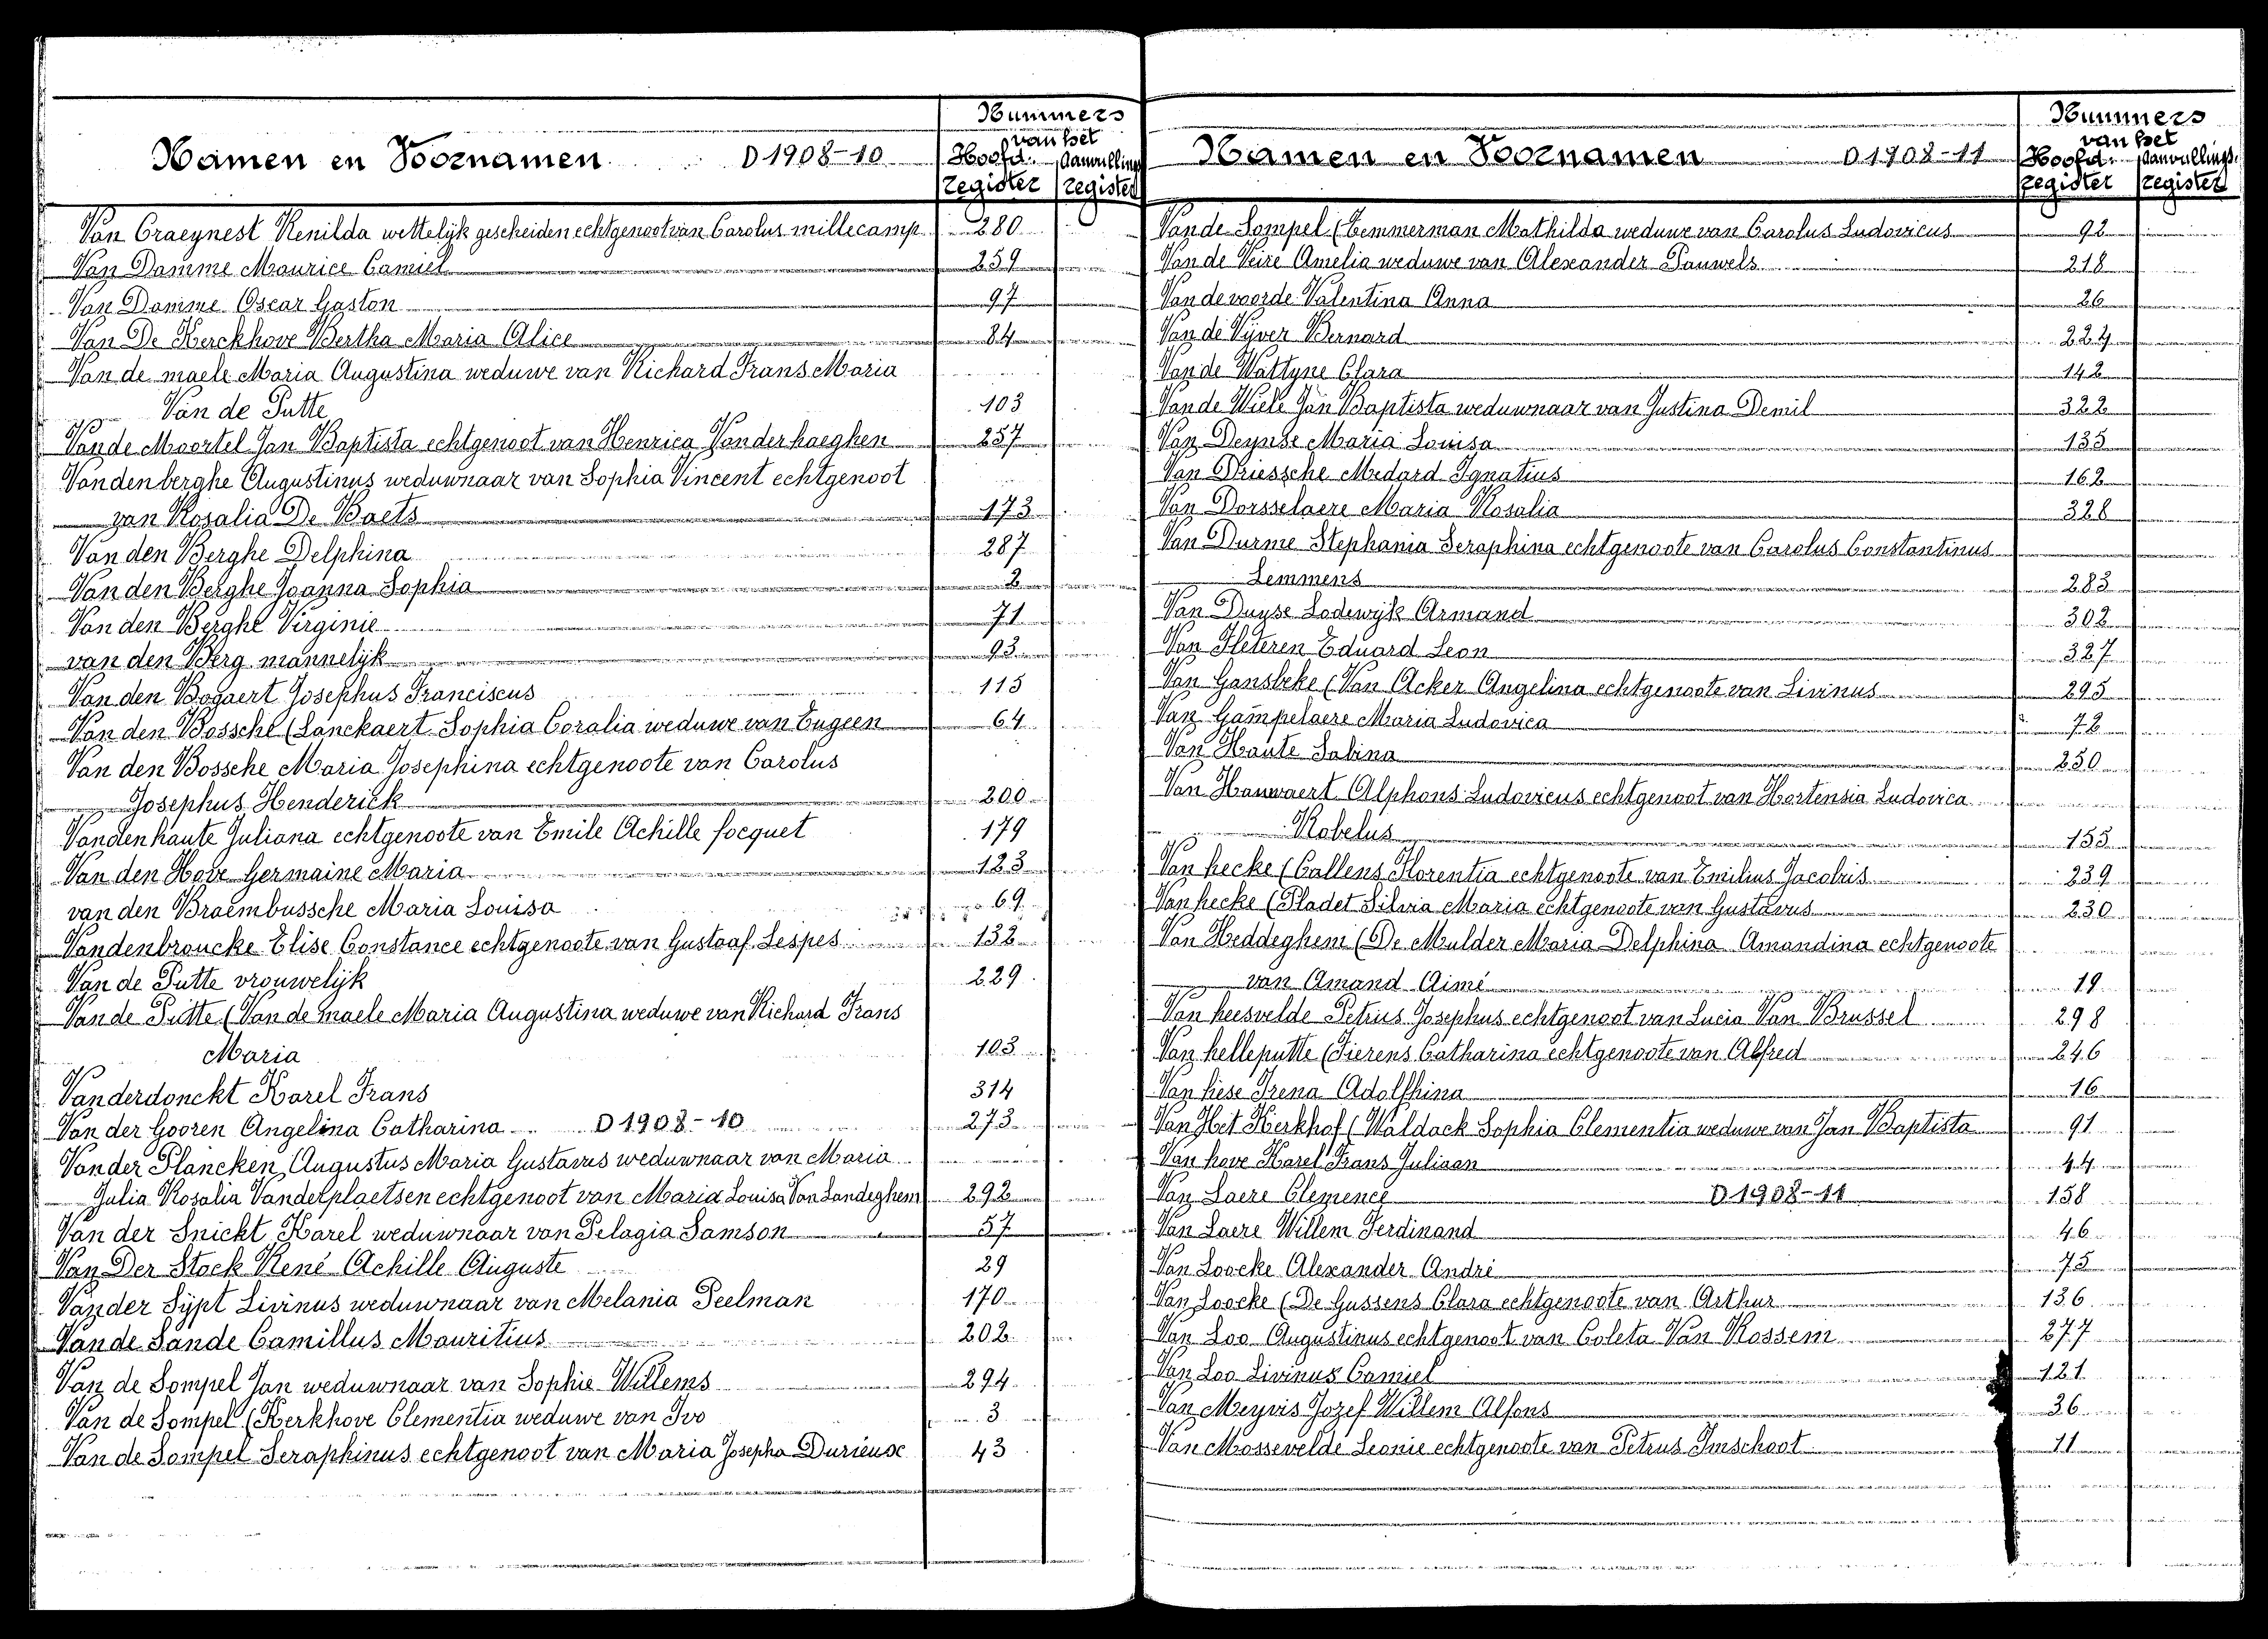 Namen en Voornamen D 1908-10
Nummers
van het
Hoofd- Aanvullings
register register
Van Craeynest Renilda wettelijk gescheiden echtgenoot van Carolus millecamp 280
Van Damme Maurice Camiel 259
Van Damme Oscar Gaston 97
Van De Kerckhove Bertha Maria Alice 84
Van de maele Maria Augustina weduwe van Richard Frans Maria
Van de Putte 103
Van de Moortel Jan Baptista echtgenoot van Henrica Vanderhaeghen 257
Vandenberghe Augustinus weduwnaar van Sophia Vincent echtgenoot
van Rosalia De Baets 173
Van den Berghe Delphina 287
Van den Berghe Joanna Sophia 2
Van den Berghe Virginie 71
van den Berg mannelijk 93
Van den Bogaert Josephus Franciscus 115
Van den Bossche (Lanckaert Sophia Coralia weduwe van Eugeen 64
Van den Bossche Maria Josephina echtgenoote van Carolus
Josephus Henderick 200
Vandenhaute Juliana echtgenoote van Emile Achille focquet 179
Van den Hove Germaine Maria 123
van den Braembussche Maria Louisa 69
Vandenbroucke Elise Constance echtgenoote van Gustaaf Lespes 132
Van de Putte vrouwelijk 229
Van de Putte (Van de maele Maria Augustina weduwe van Richard Frans
Maria 103
Vanderdonckt Karel Frans 314
Van der Gooren Angelina Catharina D 1908-10 273
Vander Plancken Augustus Maria Gustavus weduwnaar van Maria
Julia Rosalia Vanderplaetsen echtgenoot van Maria Louisa Van Landeghem 292
Van der Snickt Karel weduwnaar van Pelagia Samson 57
Van Der Stock René Achille Auguste 29
Vander Sypt Livinus weduwnaar van Melania Peelman 170
Van de Sande Camillus Mauritius 202
Van de Sompel Jan weduwnaar van Sophie Willems 294
Van de Sompel (Kerkhove Clementia weduwe van Ivo 3
Van de Sompel Seraphinus echtgenoot van Maria Josepha Durieux 43
Namen en Voornamen D 1908-11
Nummers
van het
Hoofd- Aanvullings-
register register
Van de Sompel (Temmerman Mathilda weduwe van Carolus Ludovicus 92
Van de Veire Amelia weduwe van Alexander Pauwels 218
Van de voorde Valentina Anna 26
Van de Vijver Bernard 224
Van de Wattyne Clara 142
Van de Wiele Jan Baptista weduwnaar van Justina Demil 322
Van Deynse Maria Louisa 135
Van Driessche Medard Ignatius 162
Van Dorsselaere Maria Rosalia 328
Van Durme Stephania Seraphina echtgenoote van Carolus Constantinus
Lemmens 283
Van Duyse Lodewijk Armand 302
Van Fleteren Eduard Leon 327
Van Gansbeke (Van Acker Angelina echtgenoote van Livinus 295
Van Gampelaere Maria Ludovica 72
Van Haute Sabina 250
Van Hauwaert Alphons Ludovicus echtgenoot van Hortensia Ludovica
Kobelus 155
Van hecke (Callens Florentia echtgenoote van Emilius Jacobus 239
Van hecke (Pladet Silvia Maria echtgenoote van Gustavus 230
Van Heddeghem (De Mulder Maria Delphina Amandina echtgenoote
van Amand Aimé 19
Van heesvelde Petrus Josephus echtgenoot van Lucia Van Brussel 298
Van helleputte (Fierens Catharina echtgenoote van Alfred 246
Van hese Irena Adolphina 16
Van Het Kerkhof (Waldack Sophia Clementia weduwe van Jan Baptista 91
Van hove Karel Frans Juliaan 44
Van Laere Clemence D 1908-11 158
Van Laere Willem Ferdinand 46
Van Loocke Alexander André 75
Van Loocke (De Gussens Clara echtgenoote van Arthur 136
Van Loo Augustinus echtgenoot van Coleta Van Rossem 277
Van Loo Livinus Camiel 121
Van Meyvis Jozef Willem Alfons 36
Van Mossevelde Leonie echtgenoote van Petrus Imschoot 11